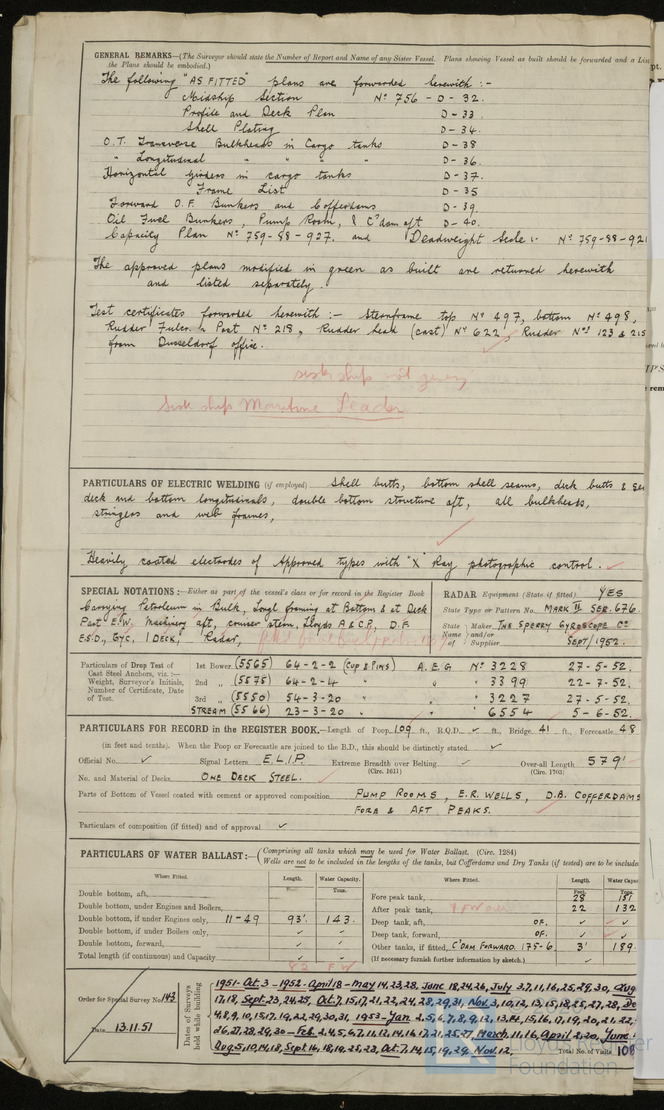 GENERAL REMARKS—(The Surveyor should state the Number of Report and Name of any Sister Vessel. Plans showing Vessel as built should be forwarded and a Lis
the Plans should be embodied.)
The following "AS FITTED" plans are forwarded herewith :-
Midship Section Nº 756 - D - 32.
Profile and Deck Plan D - 33
Shell Plating D - 34.
O.T. Transverse Bulkheads in Cargo tanks D - 38
" Longitudinal " " " " D - 36.
Horizontal girders in cargo tanks D - 37.
Frame List D - 35
Forward O.F. Bunkers and Cofferdams D - 39.
Oil Fuel Bunkers, Pump Room, & C'dam aft D - 40.
Capacity Plan Nº 759-88-927. and Deadweight Scale :- Nº 759-88-921
The approved plans modified in green as built are returned herewith
and listed separately.
Test certificates forwarded herewith :- Sternframe top Nº 497, bottom Nº 498,
Rudder Post Nº 218, Rudder head (cast) Nº 622, Rudder Nºs 123 & 215
from Dusseldorf office.
sister ships not given
Sister ships Maritime Leader
PARTICULARS OF ELECTRIC WELDING (if employed) Shell butts, bottom shell seams, deck butts &
deck and bottom longitudinals, double bottom structure aft, all bulkheads,
stringers and web frames,
Heavily coated electrodes of Approved types with "X" Ray photographic control.
SPECIAL NOTATIONS:—Either as part of the vessel's class or for record in the Register Book
Carrying Petroleum in Bulk, Longl framing at Bottom & at Deck
Part E.W. Machinery aft, cruiser stern, Lloyds A & C.P., D.F.
E.S.D., Gyc, 1 Deck, Radar,
RADAR Equipment (State if fitted) YES
State Type or Pattern No. MARK II SER. 676
State Name of Maker and/or Supplier THE SPERRY GYROSCOPE Cº
SEPT/1952.
Particulars of Drop Test of Cast Steel Anchors, viz. :— Weight, Surveyor's Initials, Number of Certificate, Date of Test.
1st Bower (5565) 64-2-2 (Cup & Pins) A.E.G Nº 3228 27-5-52.
2nd " (5575) 64-2-4 " " 3399 22-7-52.
3rd " (5550) 54-3-20 " " 3227 27-5-52.
STREAM (5566) 23-3-20 " " 6554 5-6-52.
PARTICULARS FOR RECORD in the REGISTER BOOK.—Length of Poop 109 ft., R.Q.D. ✓ ft., Bridge 41 ft., Forecastle 48
(in feet and tenths). When the Poop or Forecastle are joined to the B.D., this should be distinctly stated. ✓
Official No. ✓ Signal Letters E.L.I.P. Extreme Breadth over Belting ✓ Over-all Length 579'
(Circ. 1611) (Circ. 1703)
No. and Material of Decks ONE DECK STEEL.
Parts of Bottom of Vessel coated with cement or approved composition PUMP ROOMS, E.R. WELLS, D.B. COFFERDAMS
FORE & AFT PEAKS.
Particulars of composition (if fitted) and of approval ✓
PARTICULARS OF WATER BALLAST:—(Comprising all tanks which may be used for Water Ballast. (Circ. 1284)
Wells are not to be included in the lengths of the tanks, but Cofferdams and Dry Tanks (if tested) are to be include
Where Fitted. Length. Water Capacity. Where Fitted. Length. Water Capac
Feet. Tons. Feet. Tons.
Double bottom, aft, Fore peak tank, 28 151
Double bottom, under Engines and Boilers, After peak tank, 22 132
Double bottom, if under Engines only, 11-49 93' 143. Deep tank, aft, OF. ✓ ✓
Double bottom, if under Boilers only, ✓ ✓ Deep tank, forward, OF. ✓ ✓
Double bottom, forward, ✓ ✓ Other tanks, if fitted, C'DAM FORWARD. 175-6. 3' 189.
Total length (if continuous) and Capacity ✓ ✓ (If necessary furnish further information by sketch.) ✓
Order for Special Survey No. 143
Date 13.11.51
Dates of Surveys held while building
1951-Oct. 3-1952-April 18-May 14,23,28, June 18,24,26, July 3,7,11,16,25,29,30, Aug
17,18, Sept. 23,24,25, Oct. 7,15,17,21,22,24,28,29,31, Nov. 3,10,12,13,15,18,25,27,28, De
4,8,9,10,15,17,19,22,29,30,31, 1953-Jan. 2,5,6,7,8,9,12,13,14,15,16,17,19,20,21,22,
26,27,28,29,30-Feb. 2,4,5,6,7,11,12,14,16,17,21,25,27, March, 11,16, April 2,20, June
Aug. 5,10,14,18, Sept. 16,18,19,23,25, Oct. 7,14,15,19,29, Nov. 12.
Total No. of Visits 108
Lloyd's Register
Foundation